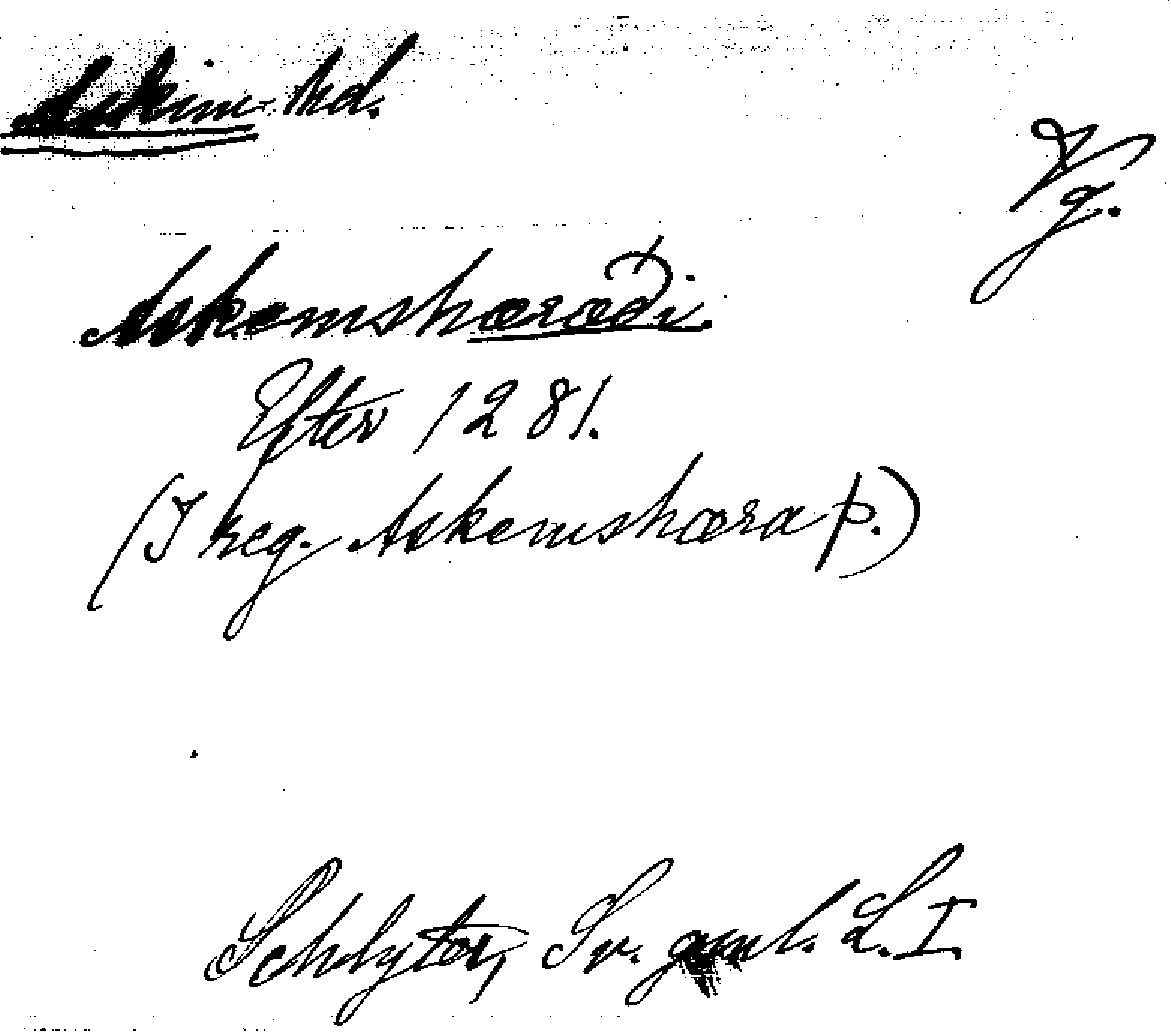 Askim hd.
Vg.
Askemshæræði.
Efter 1281.
(I reg. Askemshæraþ.)
Schlyter, Sv. gml. L. I.